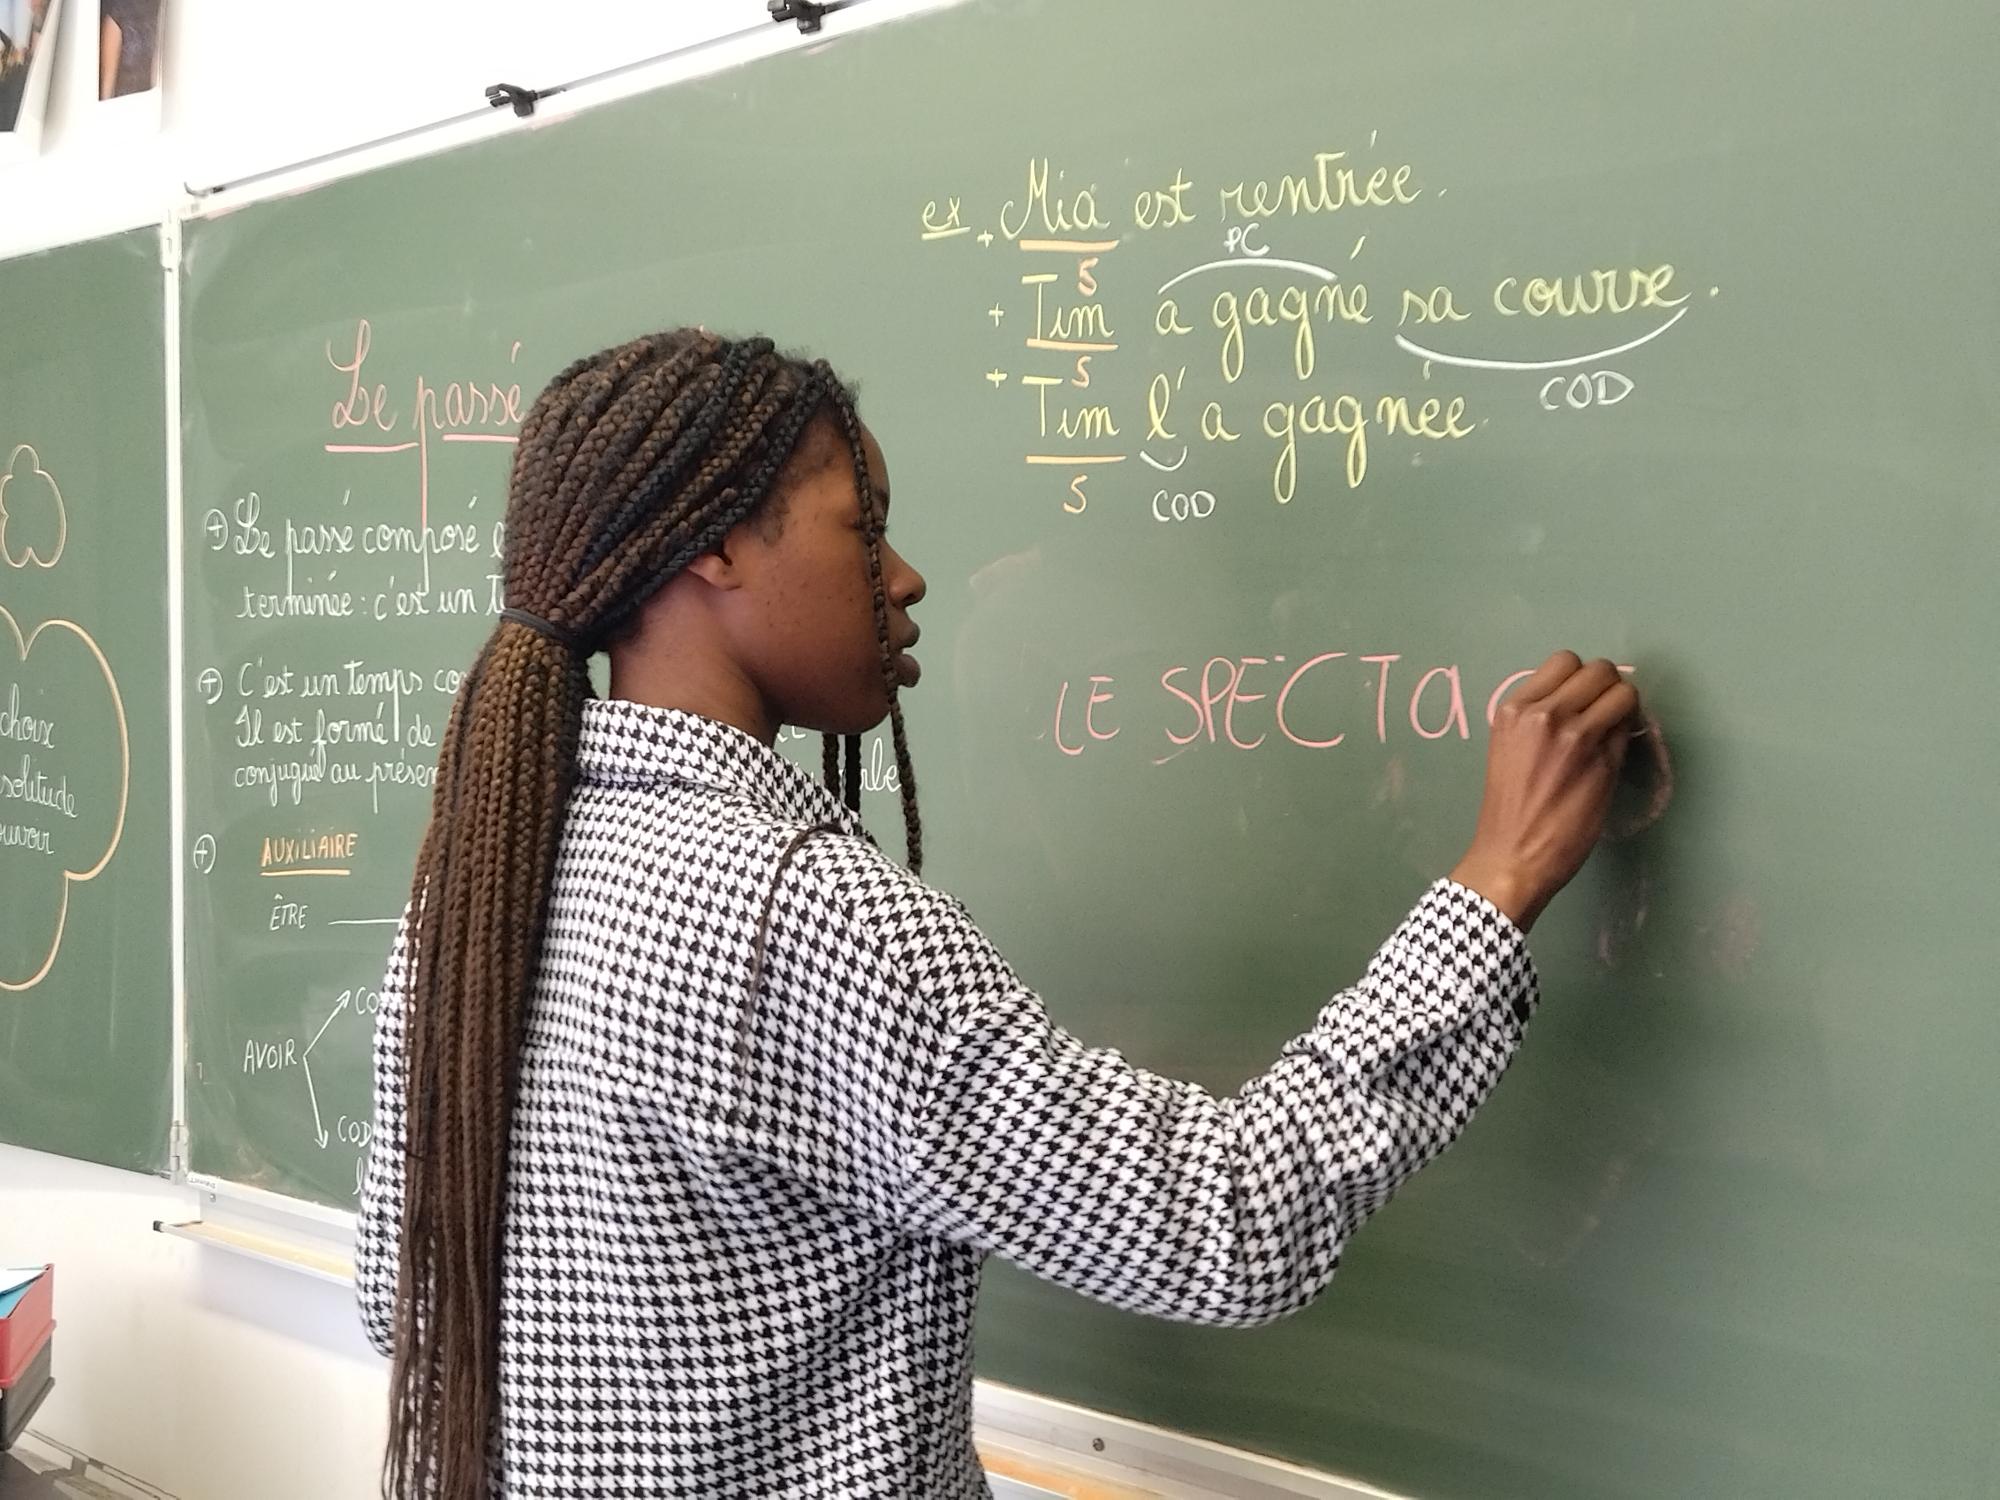 choix
solitude
Le passé
+ Le passé composé
terminée : c'est un
+ C'est un temps
Il est formé de
conjugué au présen
+ AUXILIAIRE
ÊTRE
AVOIR
COD
ex + Mia est rentrée.
S PC
+ Tim a gagné sa course.
S COD
+ Tim l'a gagnée.
S COD
LE SPECTAC